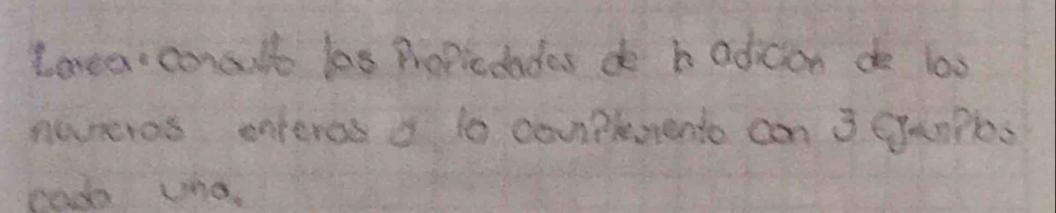 tarea: consulto las Propiedades de la adicion de los
numeros enteros y lo complemento con 3 ejemplos
cada una.